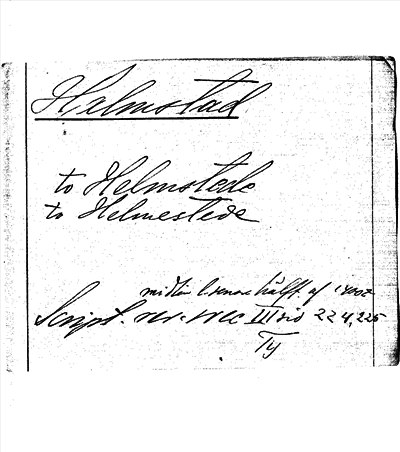 Helmstad
to Helmstede
to Helmestede
midten l. senare hälft. af 1400t
Script. rer. svec III sid 224, 225
Ty